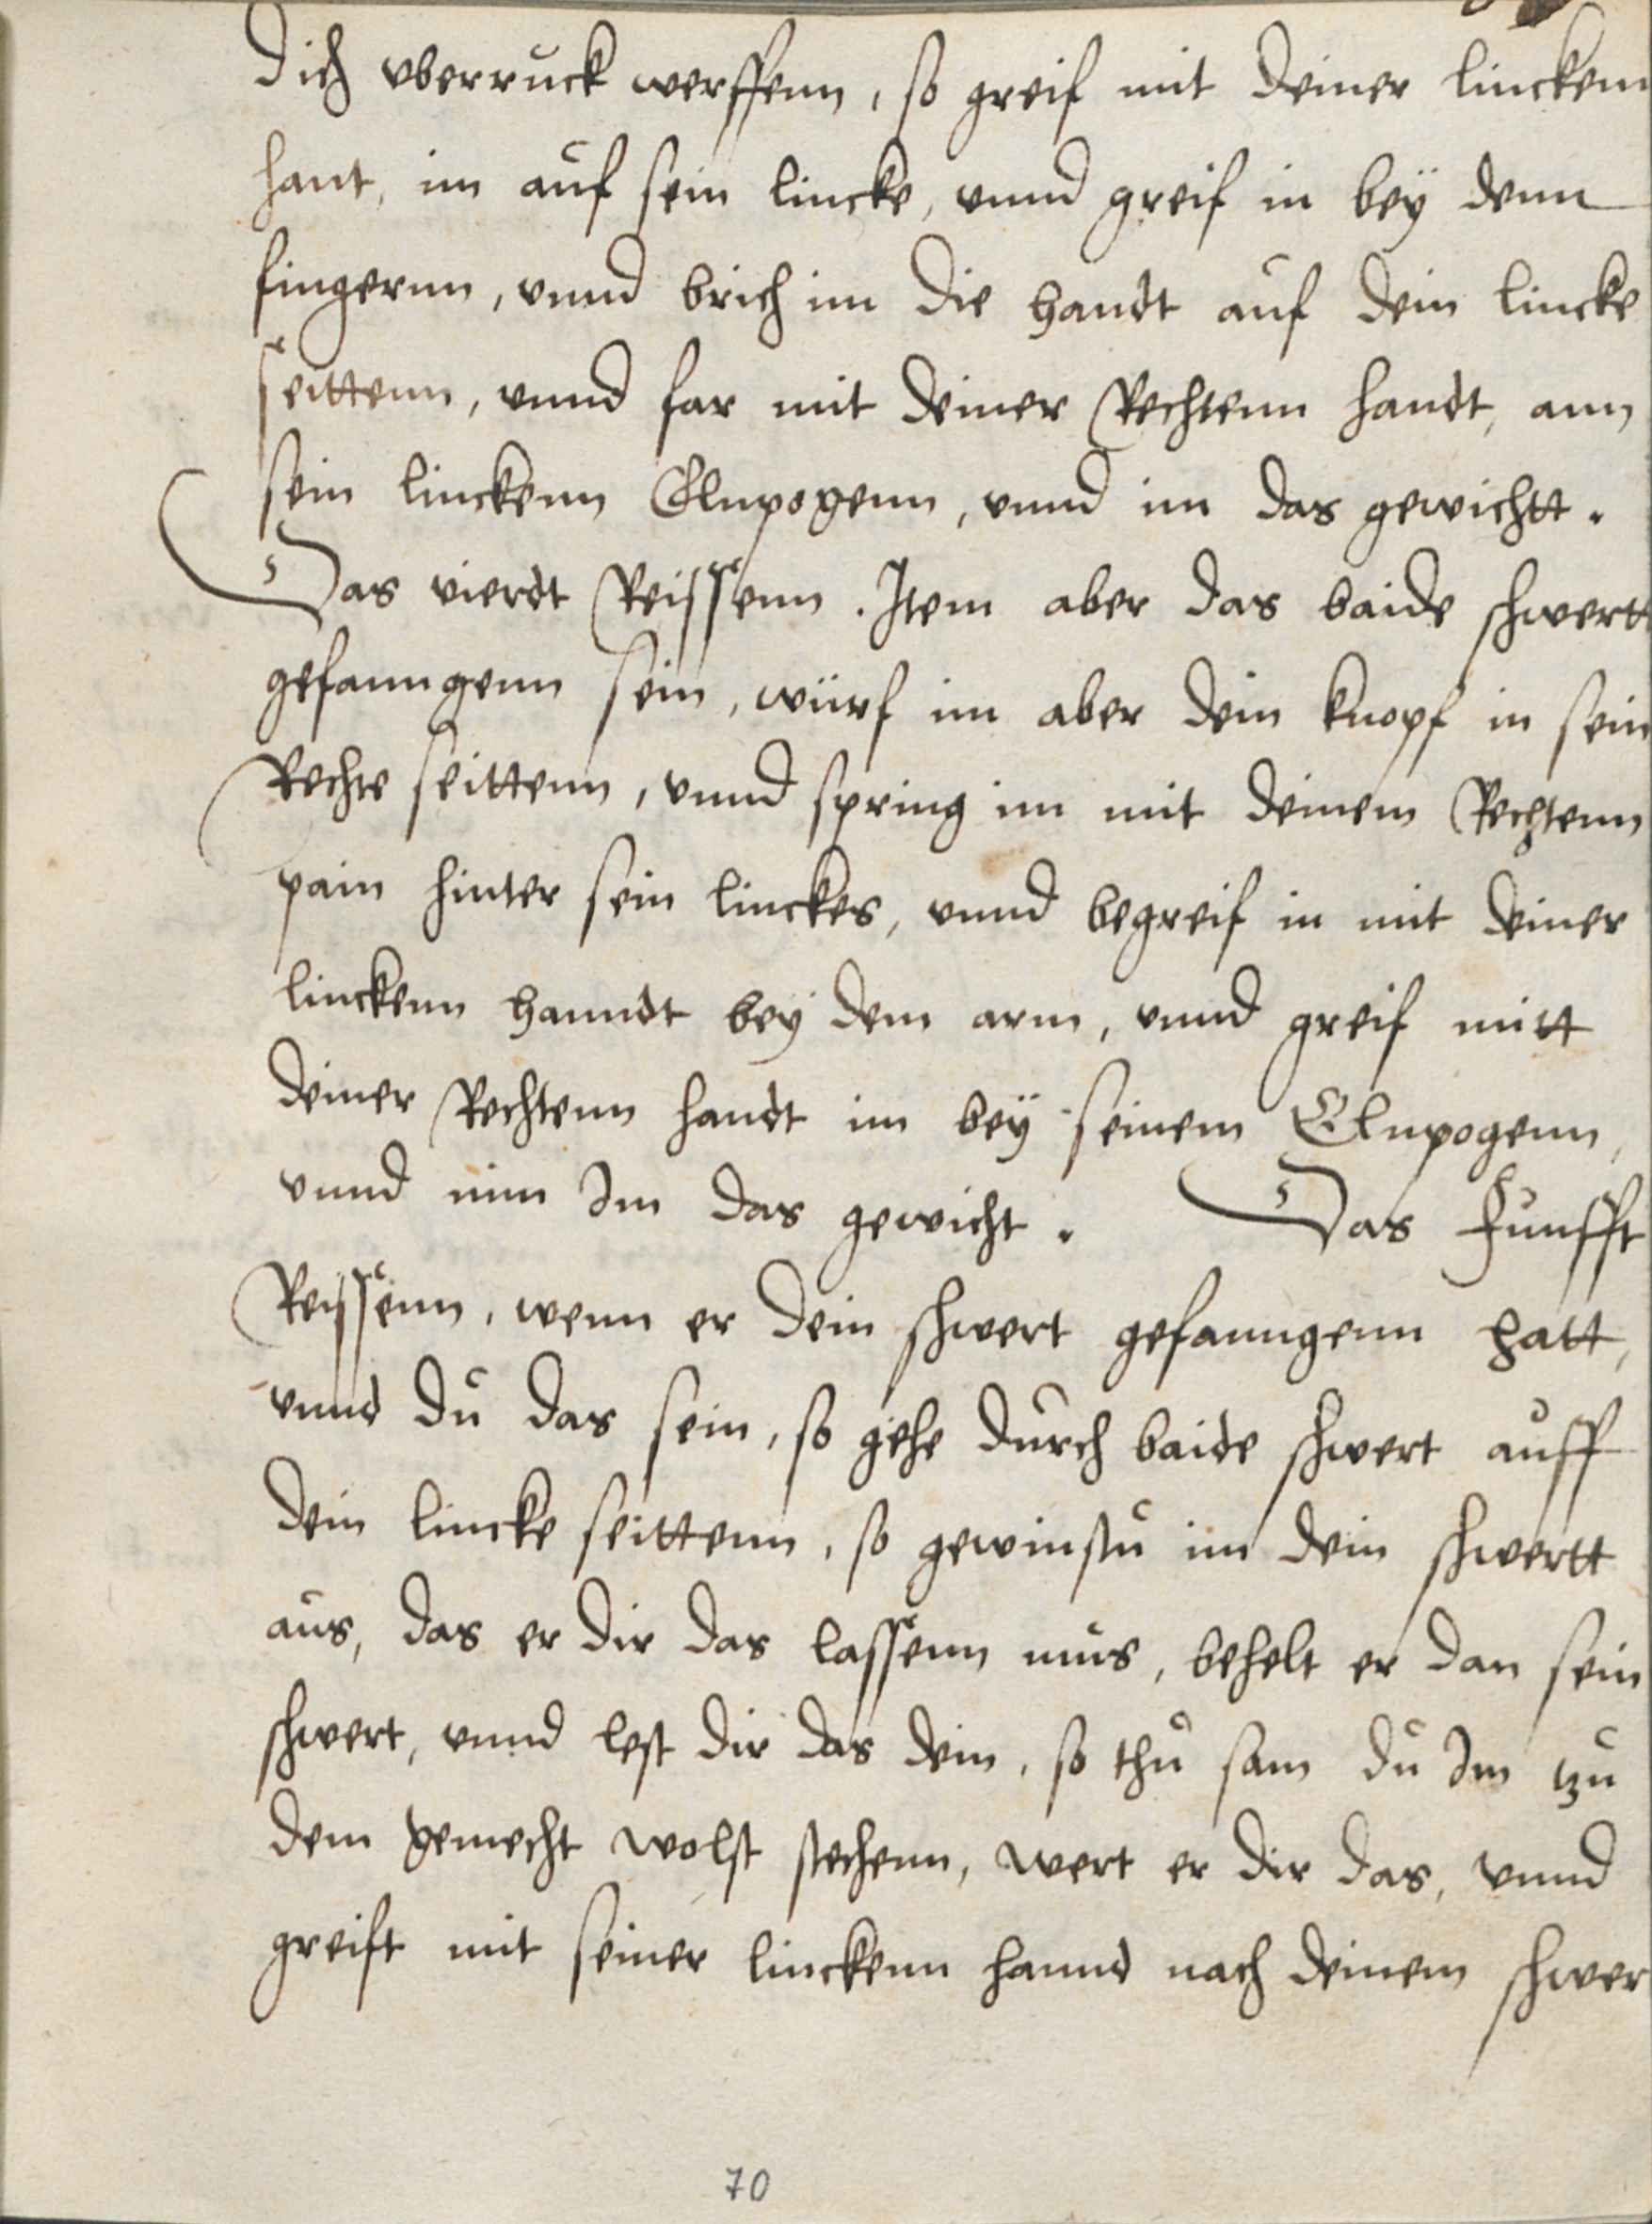 dich vberruck werffenn, so greif mit deiner linckenn
hant, im auf sein lincke, vnnd greif in beÿ denn
fingernn, vnnd brich im die handt auf dein lincke
seittenn, vnnd far mit deiner Rechtenn handt, ann
sein linckenn Elnpogenn, vnnd im das gewichtt.
Das vierdt Reissenn. Item aber das baide schwertt
gefanngenn sein, würf im aber dein knopf in sein
Rechte seittenn, vnnd spring im mit deinem Rechtenn
pain hinter sein linckes, vnnd begreif in mit deiner
linckenn hanndt bey dem arm, vnnd greif mitt
deiner Rechtenn handt im beÿ seinem Elnpogenn,
vnnd nim Im das gewicht. Das Funfft
Reissenn, wenn er dein schwert gefanngenn hatt,
vnnd du das sein, so gehe durch baide schwert auff
dein lincke seittenn, so gewinstu im dein schwertt
aus, das er dir das lassenn mus, behelt er dan sein
schwert, vnnd lest dir das dein, so thu sam du Im tzu
dem gemecht wolst stechenn, wert er dir das, vnnd
greift mit seiner linckenn hannd nach deinem schwer
70